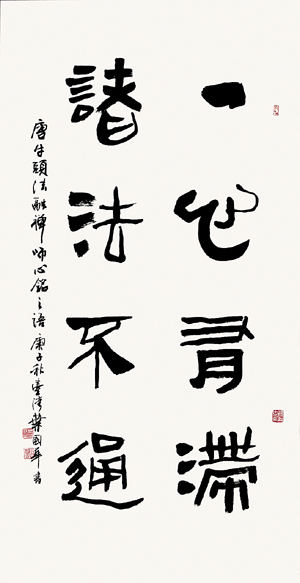 一心有滯
諸法不通
唐牛頭法融禪師心銘之語 庚子秋 國 書